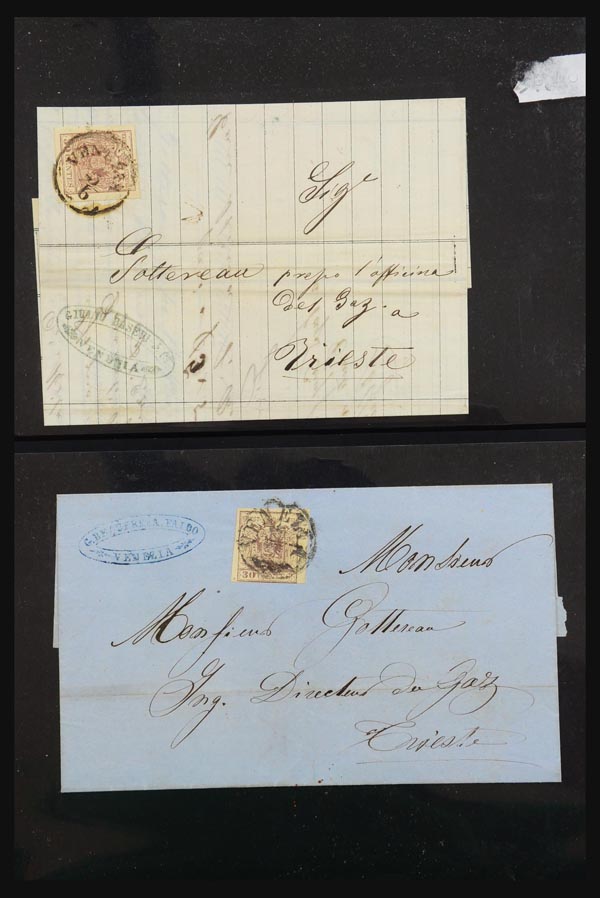 VENEZIA
26
Sig.e
Sottereau prepo l'officina
del Gaz. a
Trieste
GIULIO
VENEZIA
VENEZIA
30
VENEZIA
Monsieur
Monsieur Gottereau
Ing. Directeur du Gaz
Trieste